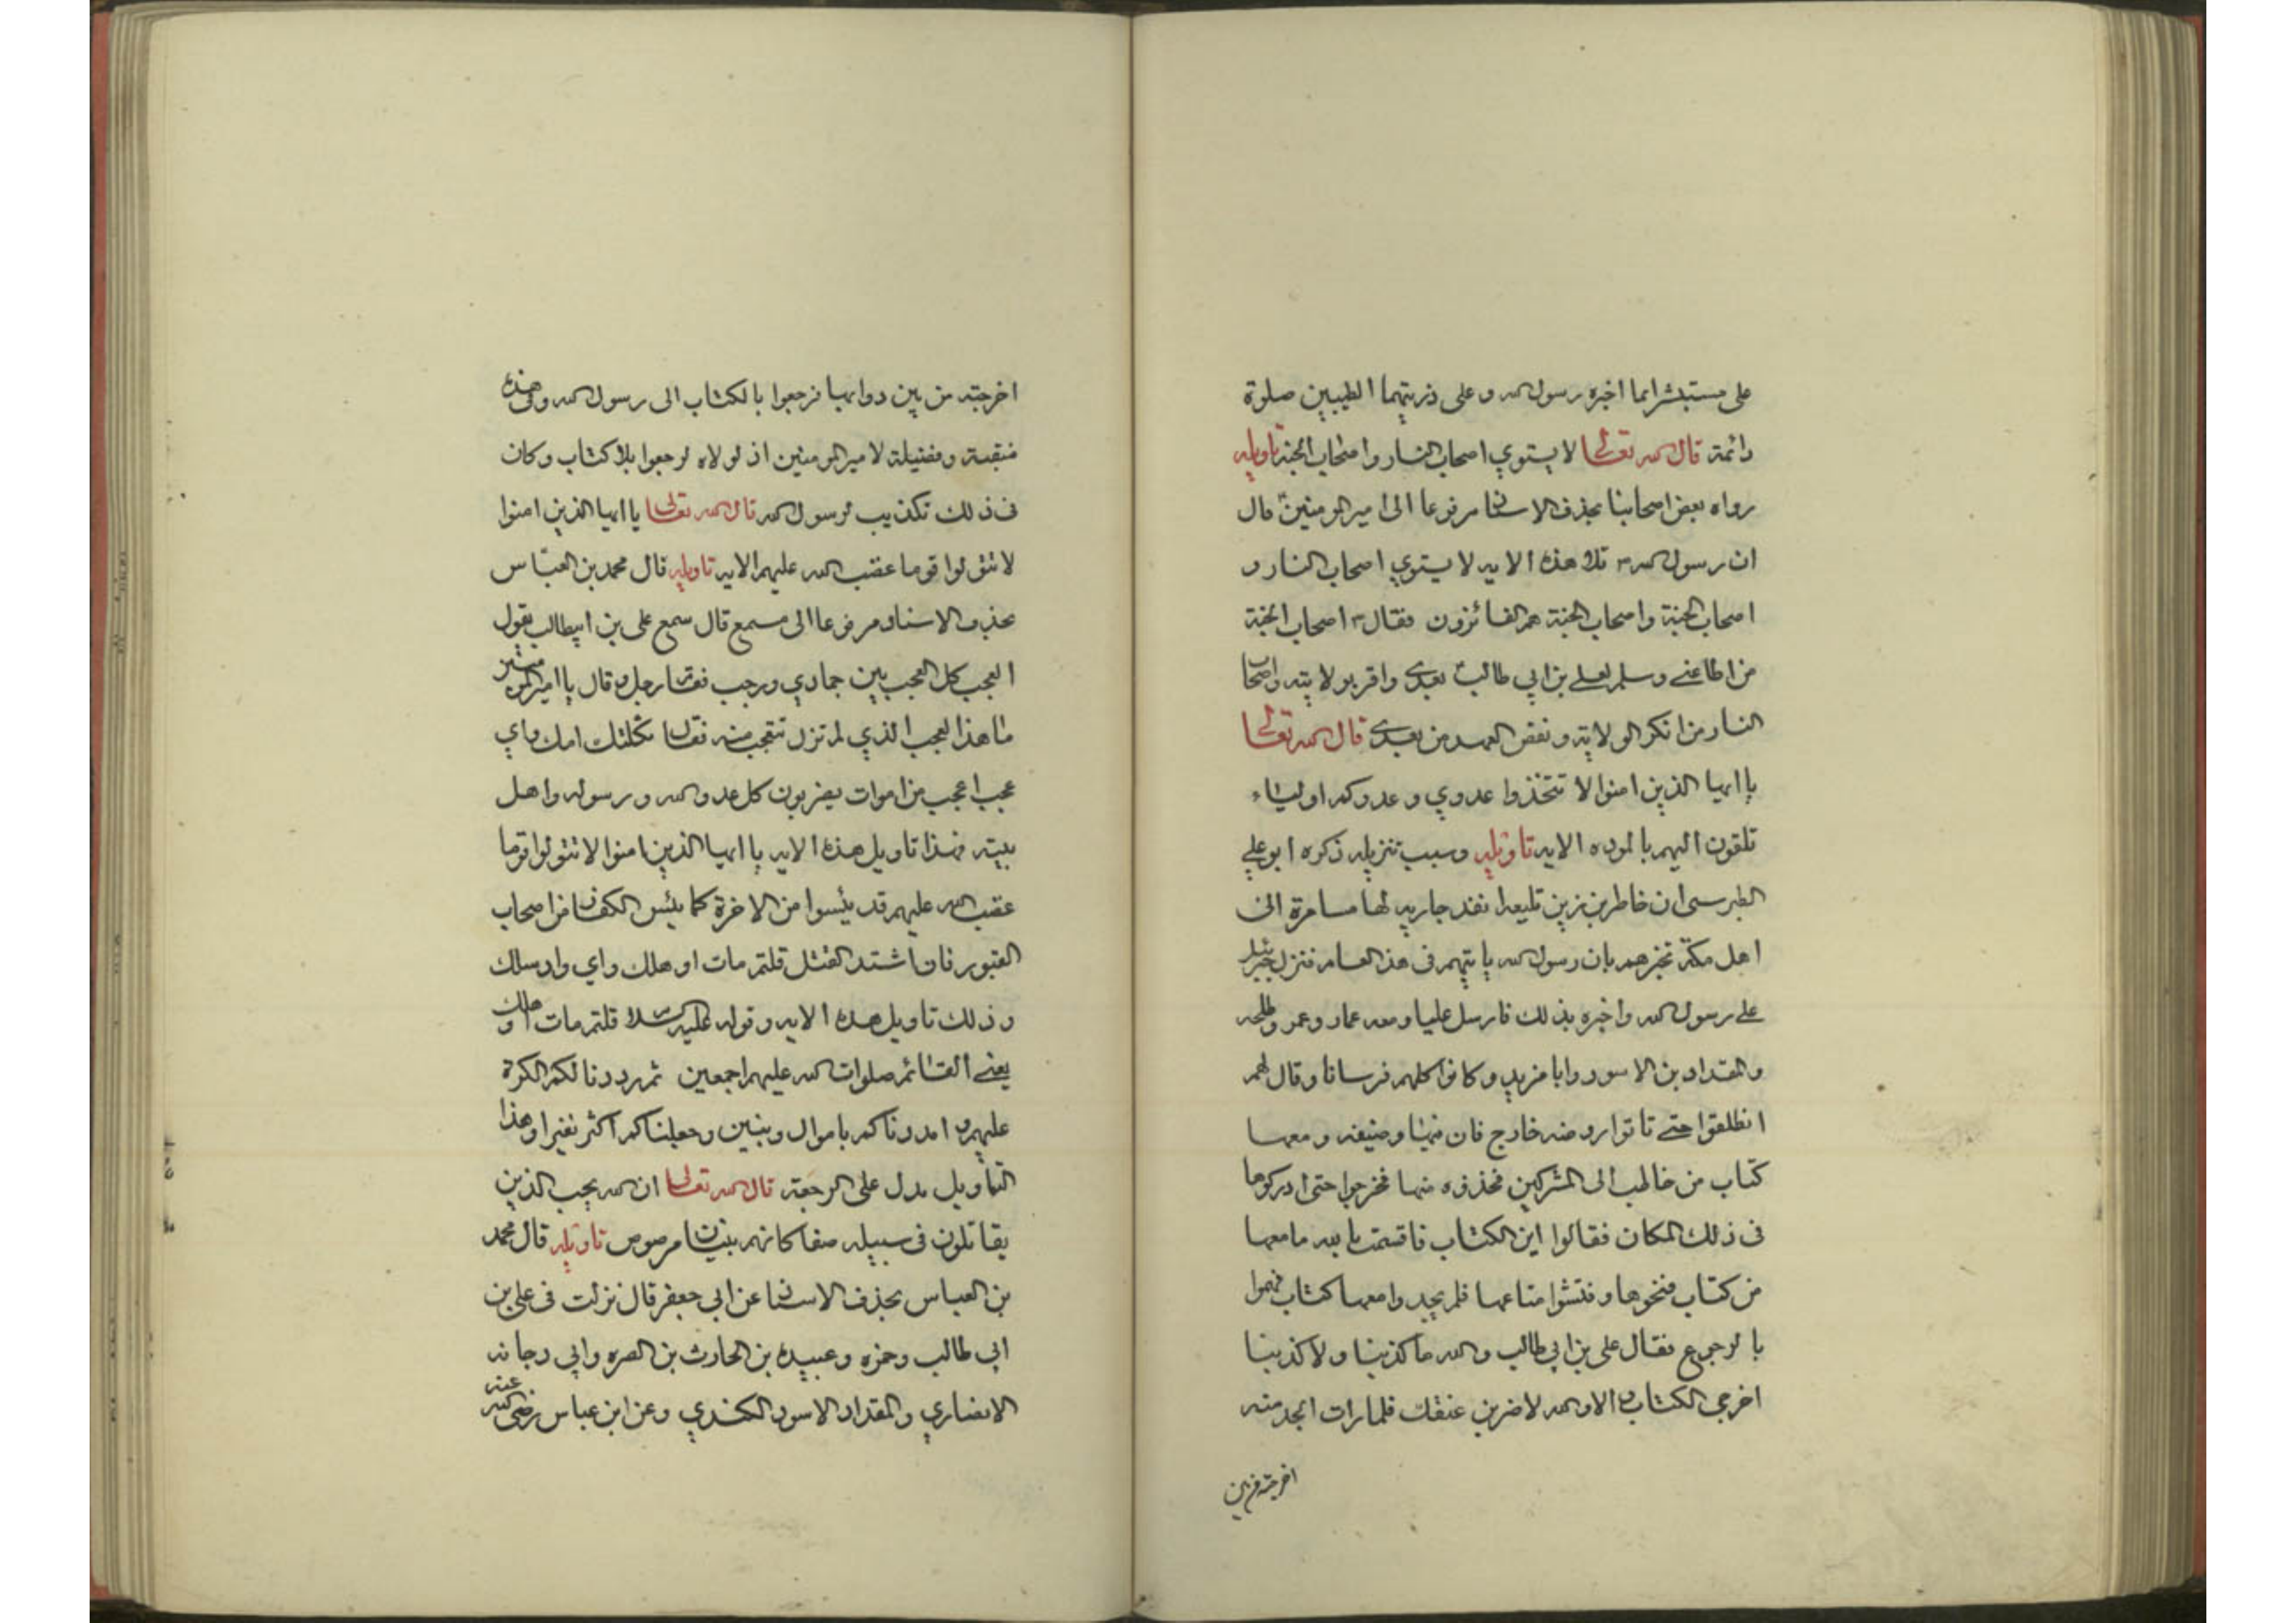 على مستبشرا بما اخبره رسول الله و على ذريتهما الطيبين صلوة
دائمة قال الله تعالى لا يستوي اصحاب النار واصحاب الجنة تاويله
رواه بعض اصحابنا بحذف الاسناد مرفوعا الى امير المومنين قال
ان رسول الله ص تلا هذه الايه لا يستوي اصحاب النار و
اصحاب الجنة واصحاب الجنة هم الفائزون فقال ص اصحاب الجنة
من اطاعني وسلم لعلي بن ابي طالب بعدي واقر بولايته واصحاب
النار من انكر الولايته ونقض العهد من بعدي قال الله تعالى
يا ايها الذين امنوا لا تتخذوا عدوي وعدوكم اولياء
تلقون اليهم بالموده الايه تاويله وسبب تنزيله ذكره ابو علي
الطبرسي ان خاطر بن زين نفذ جاريه لها الى
اهل مكة تخبرهم بان رسول الله ياتيهم في هذ العام فنزل جبرئيل
على رسول الله واخبره بذلك فارسل عليا ومعه عمار وعمر وطلحه
والمقداد بن الاسود وابا مزيد وكانوا كلهم فرسانا وقال لهم
انطلقوا حتى تاتوا روضه خارج فان فيها ومعها
كتاب من خاطب الى المشركين فخذوه منها فخرجوا حتى ادركوها
في ذلك المكان فقالوا اين الكتاب فاقسمت بالله مامعها
من كتاب فنحوها وفتشوا متاعها فلم يجدوا معها كتاب فهموا
بالرجوع فقال على بن ابي طالب والله ما كذبنا ولا كذبنا
اخرجي الكتاب والا والله لاضربن عنقك فلما رات الجد منه
اخرجته من بين
اخرجته من بين دوابها فرجعوا بالكتاب الى رسول الله وفى هذه
منقبة وفضيلة لامير المومنين اذ لولاه لرجعوا بلا كتاب وكان
في ذلك تكذيب لرسول الله قال الله تعالى يا ايها الذين امنوا
لا تتولوا قوما غضب الله عليهم الايه تاويله قال محمد بن العباس
بحذف الاسناد مرفوعا الى مسمع قال سمع على بن ابيطالب يقول
العجب كل العجب بين جمادي ورجب فقام رجل وقال يا امير المومنين
ما هذا العجب الذي لم تزل تتعجب منه فقال ثكلتك امك واي
عجب اعجب من اموات يضربون كل عدو الله ورسوله واهل
بيته فهذا تاويل هذه الايه يا ايها الذين امنوا لا تتولوا قوما
غضب الله عليهم قد يئسوا من الاخرة كما يئس الكفار من اصحاب
القبور فاذا اشتد القتل قلتم مات او هلك واي واد سلك
وذلك تاويل هذه الايه وقوله عليه السلام قلتم مات او هلك
يعني القائم صلوات الله عليهم اجمعين ثم رددنا لكم الكرة
عليهم و امددناكم باموال وبنين وجعلناكم اكثر نفيرا وهذا
التأويل يدل على الرجعة قال الله تعالى ان الله يحب الذين
يقاتلون فى سبيله صفا كانهم بنيان مرصوص تاويله قال محمد
بن العباس بحذف الاسناد عن ابي جعفر قال نزلت في علي بن
ابي طالب وحمزه وعبيده بن الحارث بن الصره وابي دجانه
الانصاري والمقداد الاسود الكندي وعن ابن عباس رضى الله عنه